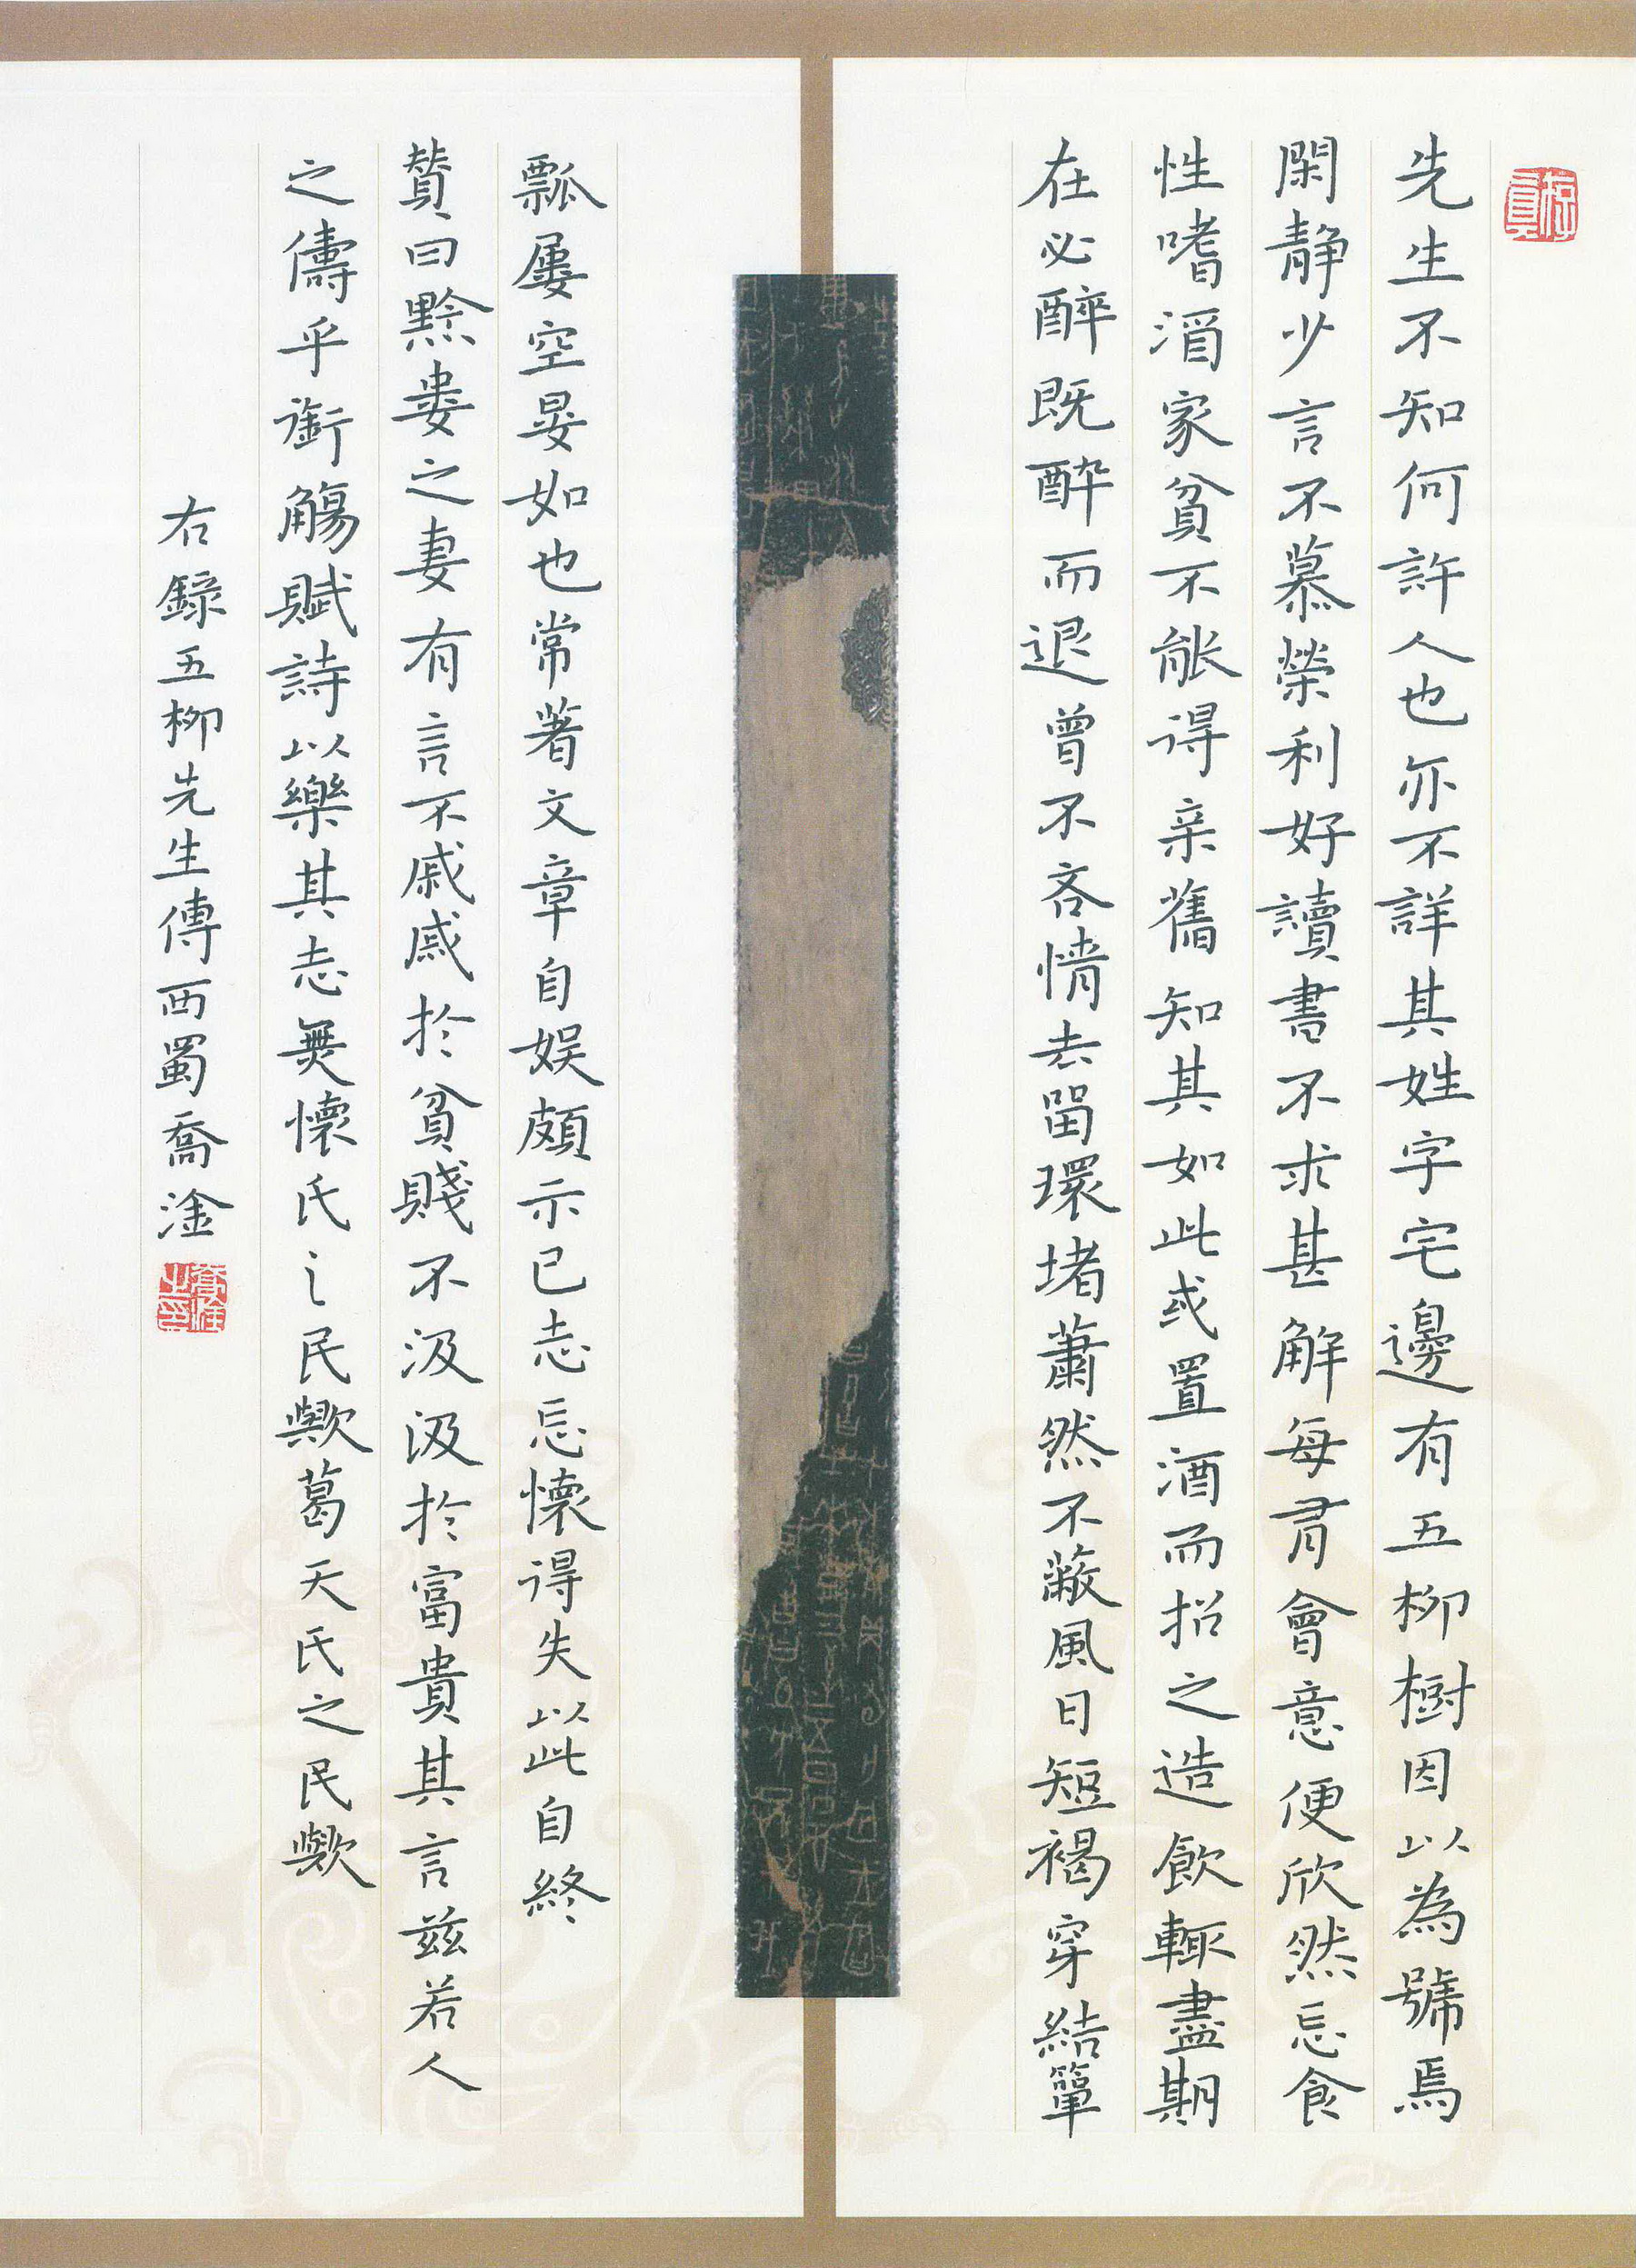 先生不知何許人也亦不詳其姓字宅邊有五柳樹因以為號焉
閑静少言不慕榮利好讀書不求甚解每有會意便欣然忘食
性嗜酒家貧不能得亲舊知其如此或置酒而招之造飲輒盡期
在必醉既醉而退曾不吝情去留環堵蕭然不蔽風日短褐穿結簞
瓢屢空晏如也常著文章自娱頗示己志忘懷得失以此自終
赞曰黔婁之妻有言不戚戚於貧賤不汲汲於富貴其言兹若人
之儔乎銜觴賦詩以樂其志無懷氏之民歟葛天氏之民歟
右録五柳先生傳西蜀喬淦